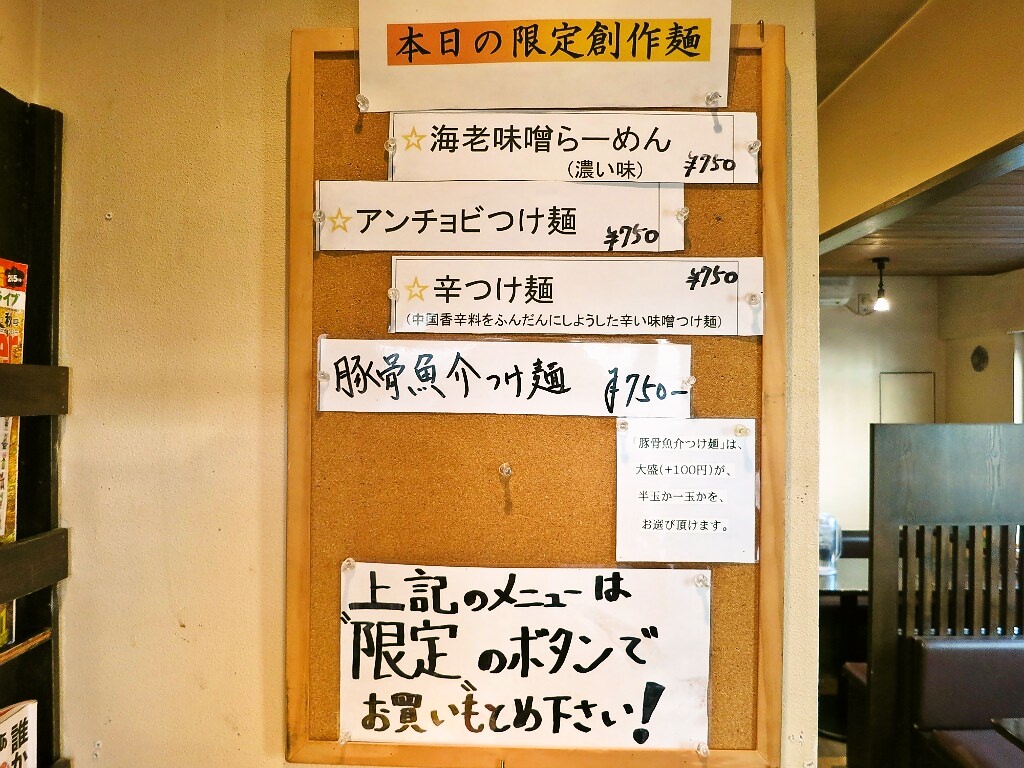 本日の限定創作麺
☆海老味噌らーめん
(濃い味) ¥750
☆アンチョビつけ麺 ¥750
¥750
☆辛つけ麺
(中国香辛料をふんだんにしようした辛い味噌つけ麺)
豚骨魚介つけ麺 ¥750-
「豚骨魚介つけ麺」は、
大盛(+100円)が、
半玉か一玉かを、
お選び頂けます。
上記のメニューは
"限定"のボタンで
お買いもとめ下さい!
ライブ
誰か